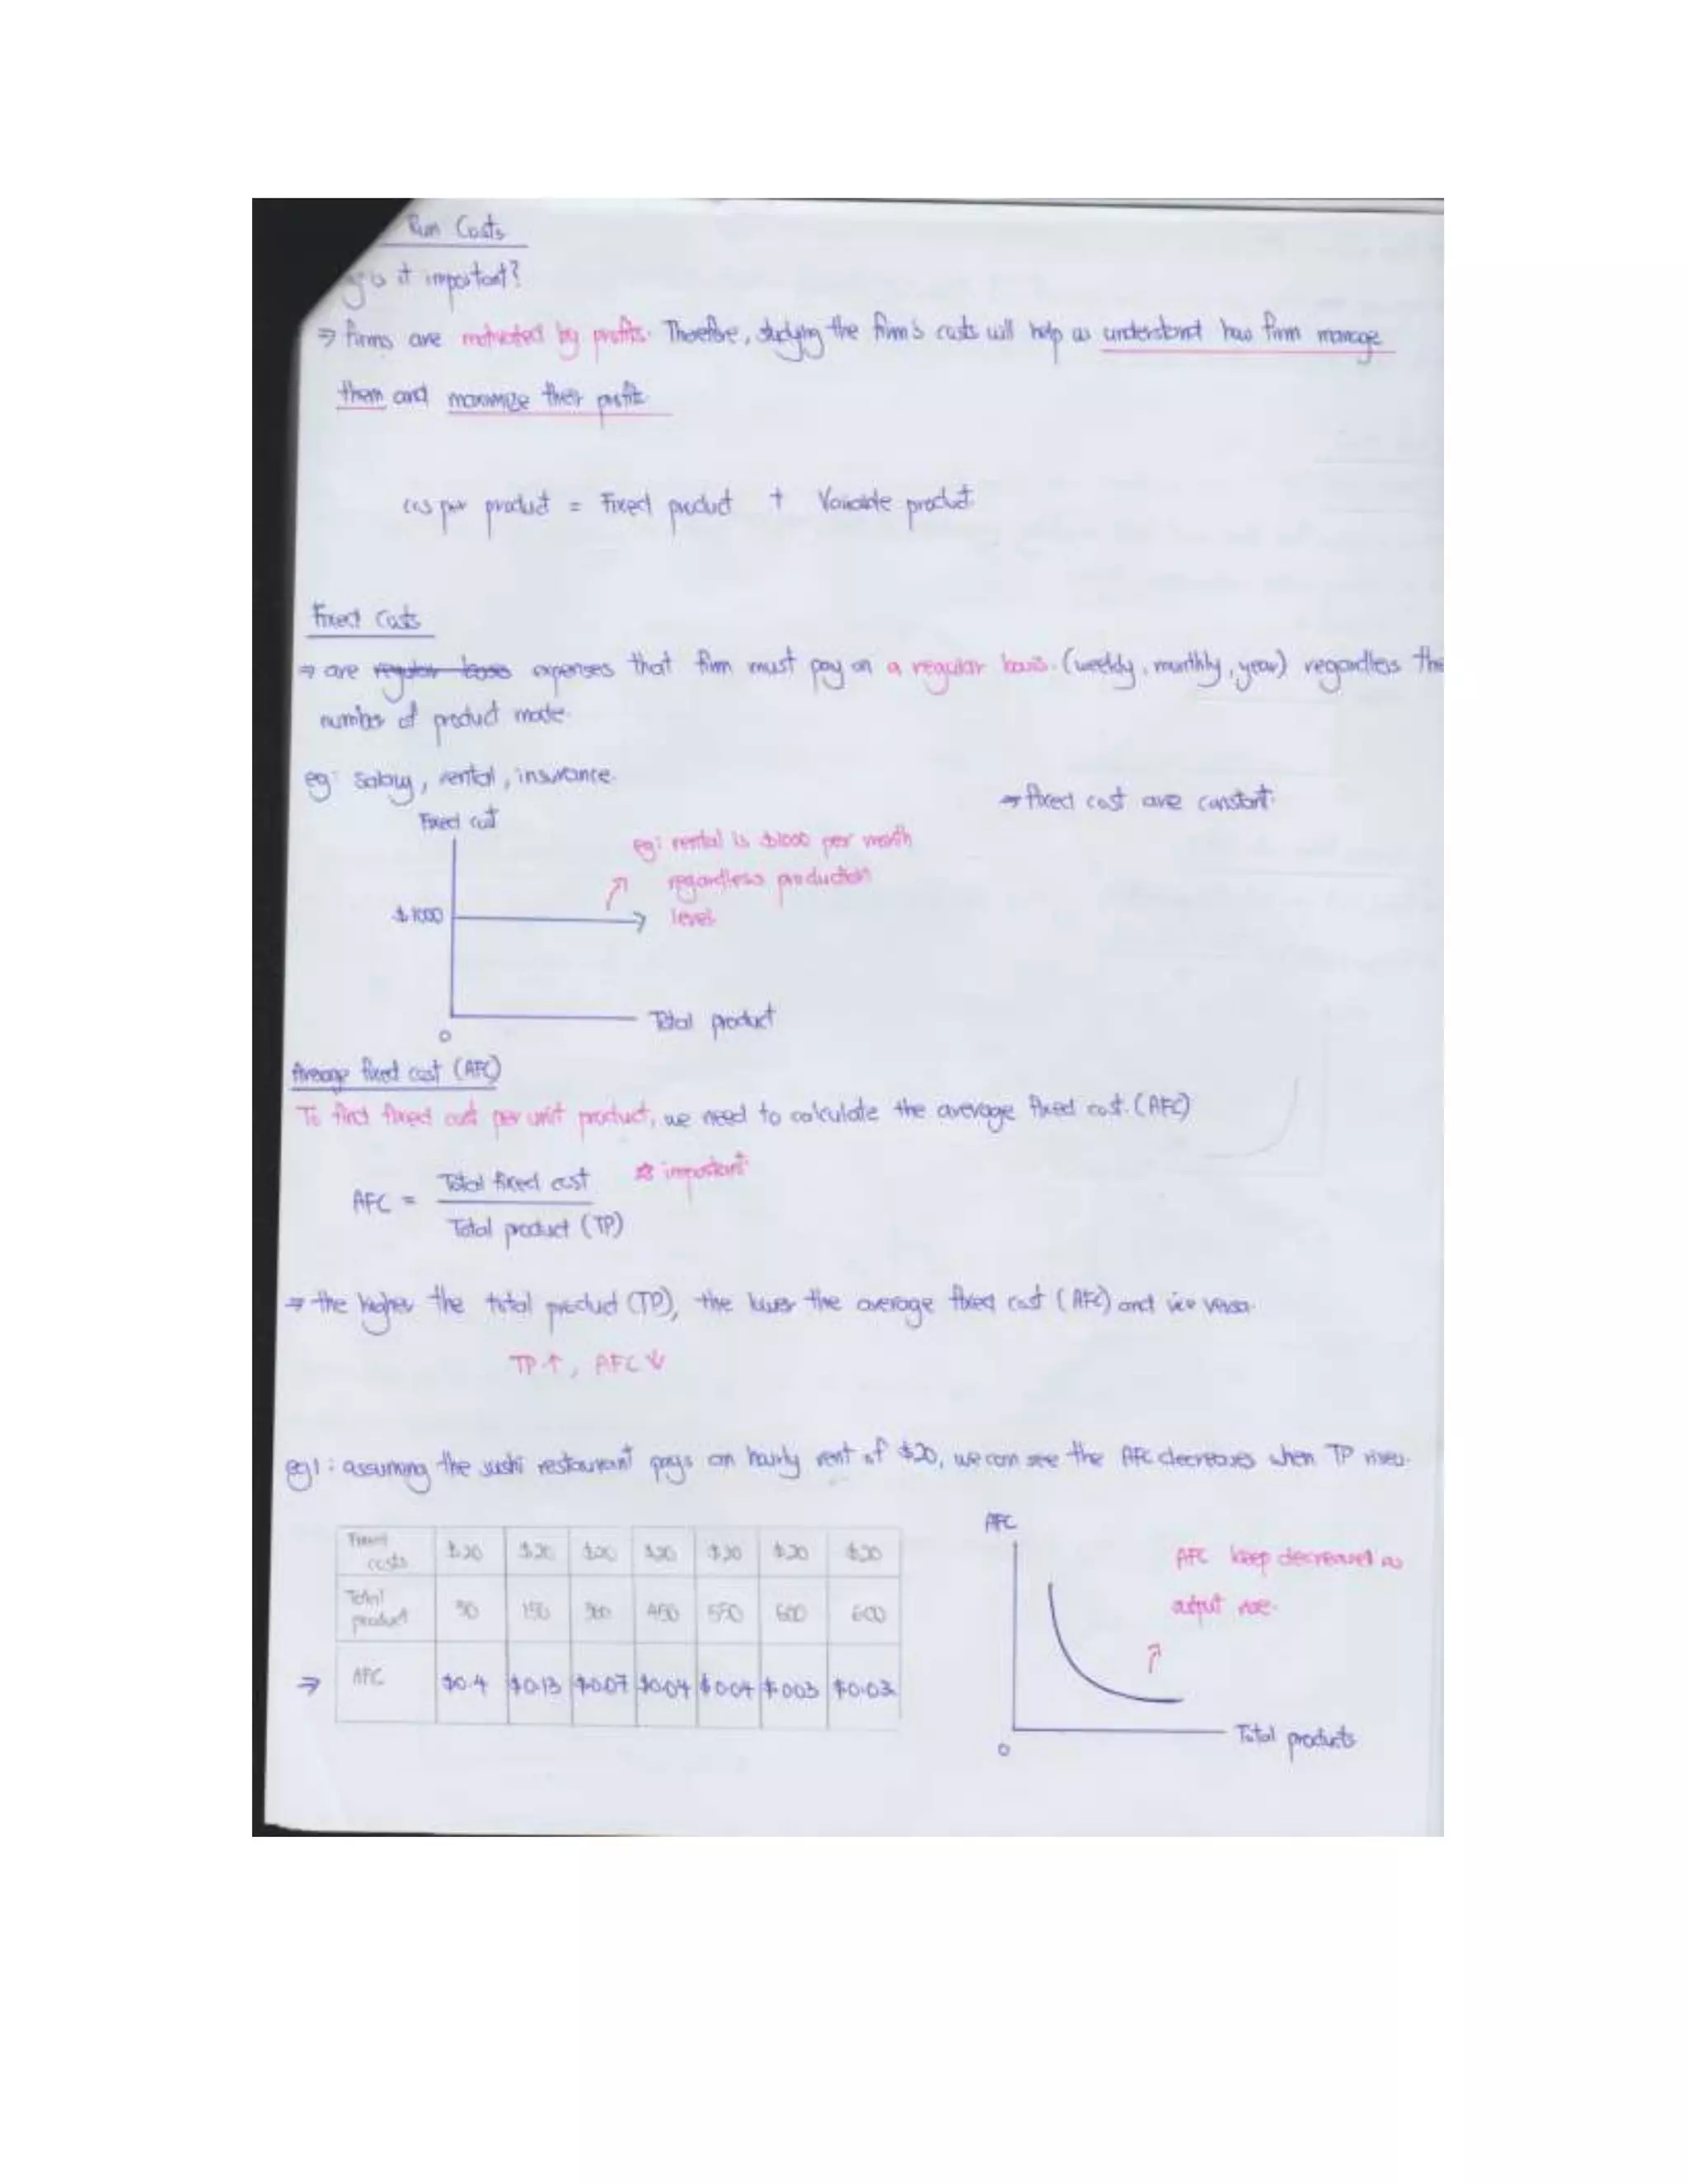 Run Costs
is it important?
⇒ firms are motivated by profits. Therefore, studying the firm's costs will help us understand how firm manage
them and maximize their profit
per product = Fixed product + Variable product
Fixed Costs
⇒ are regular bases expenses that firm must pay on a regular basis. (weekly, monthly, year) regardless the
number of product made.
eg: Salary, rental, insurance.
⇒ fixed cost are constant.
Fixed cost
eg: rental is $1000 per month
regardless production
level.
$1000
Total product
0
Average fixed cost (AFC)
To find fixed cost per unit product, we need to calculate the average fixed cost. (AFC)
AFC = Total fixed cost
☆ important
Total product (TP)
⇒ the higher the total product (TP), the lower the average fixed cost (AFC) and vice versa.
TP↑, AFC↓
eg1: assuming the sushi restaurant pays an hourly rent of $20, we can see the AFC decreases when TP rises.
Fixed costs $20 $20 $20 $20 $20 $20 $20
Total product 50 150 300 450 550 600 600
⇒ AFC $0.4 $0.13 $0.07 $0.04 $0.04 $0.03 $0.03
AFC
AFC keep decreased as
output rise.
Total products
0